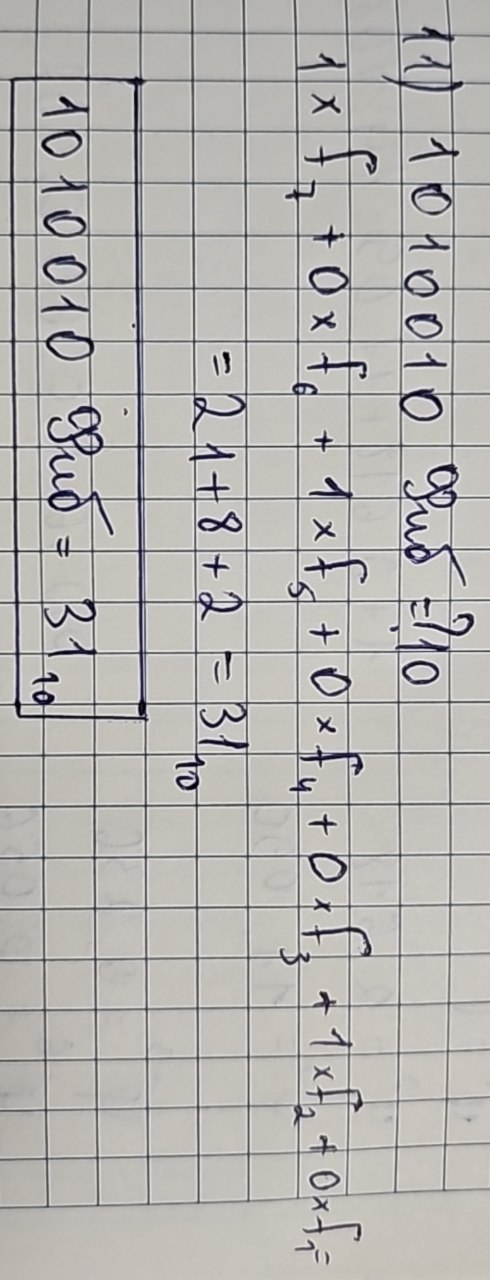 11) 1010010 фиб = ?10
1 × f₇ + 0 × f₆ + 1 × f₅ + 0 × f₄ + 0 × f₃ + 1 × f₂ + 0 × f₁ =
= 21 + 8 + 2 = 31₁₀
1010010 фиб = 31₁₀